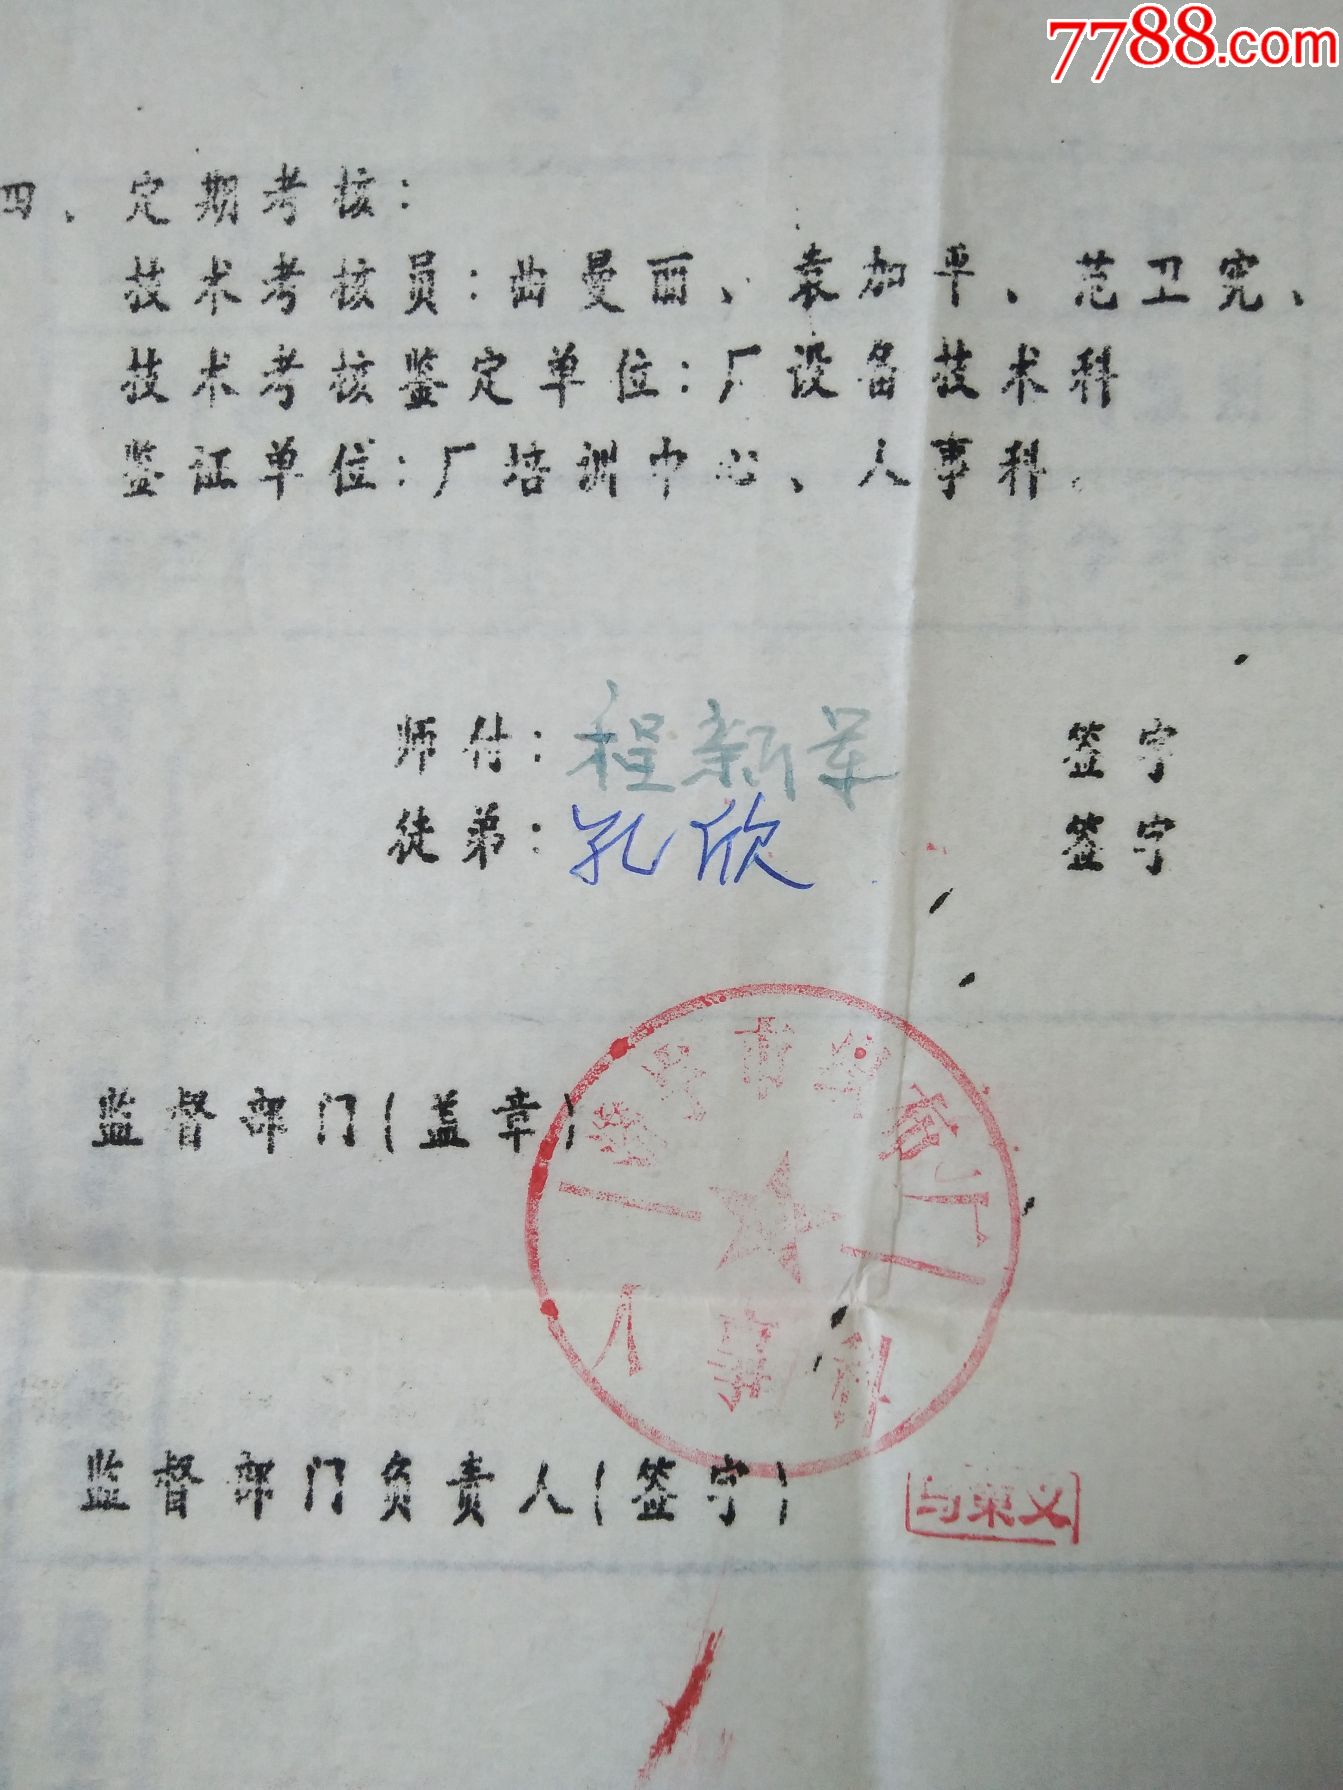 7788.com
四、定期考核：
技术考核员：曲曼丽、袁加平、范卫宪、
技术考核鉴定单位：厂设备技术科
鉴证单位：厂培训中心、人事科.
师付：程新军 签字
徒弟：孔欣 签字
监督部门(盖章)
市 厂
人事科
监督部门负责人(签字) 马荣义